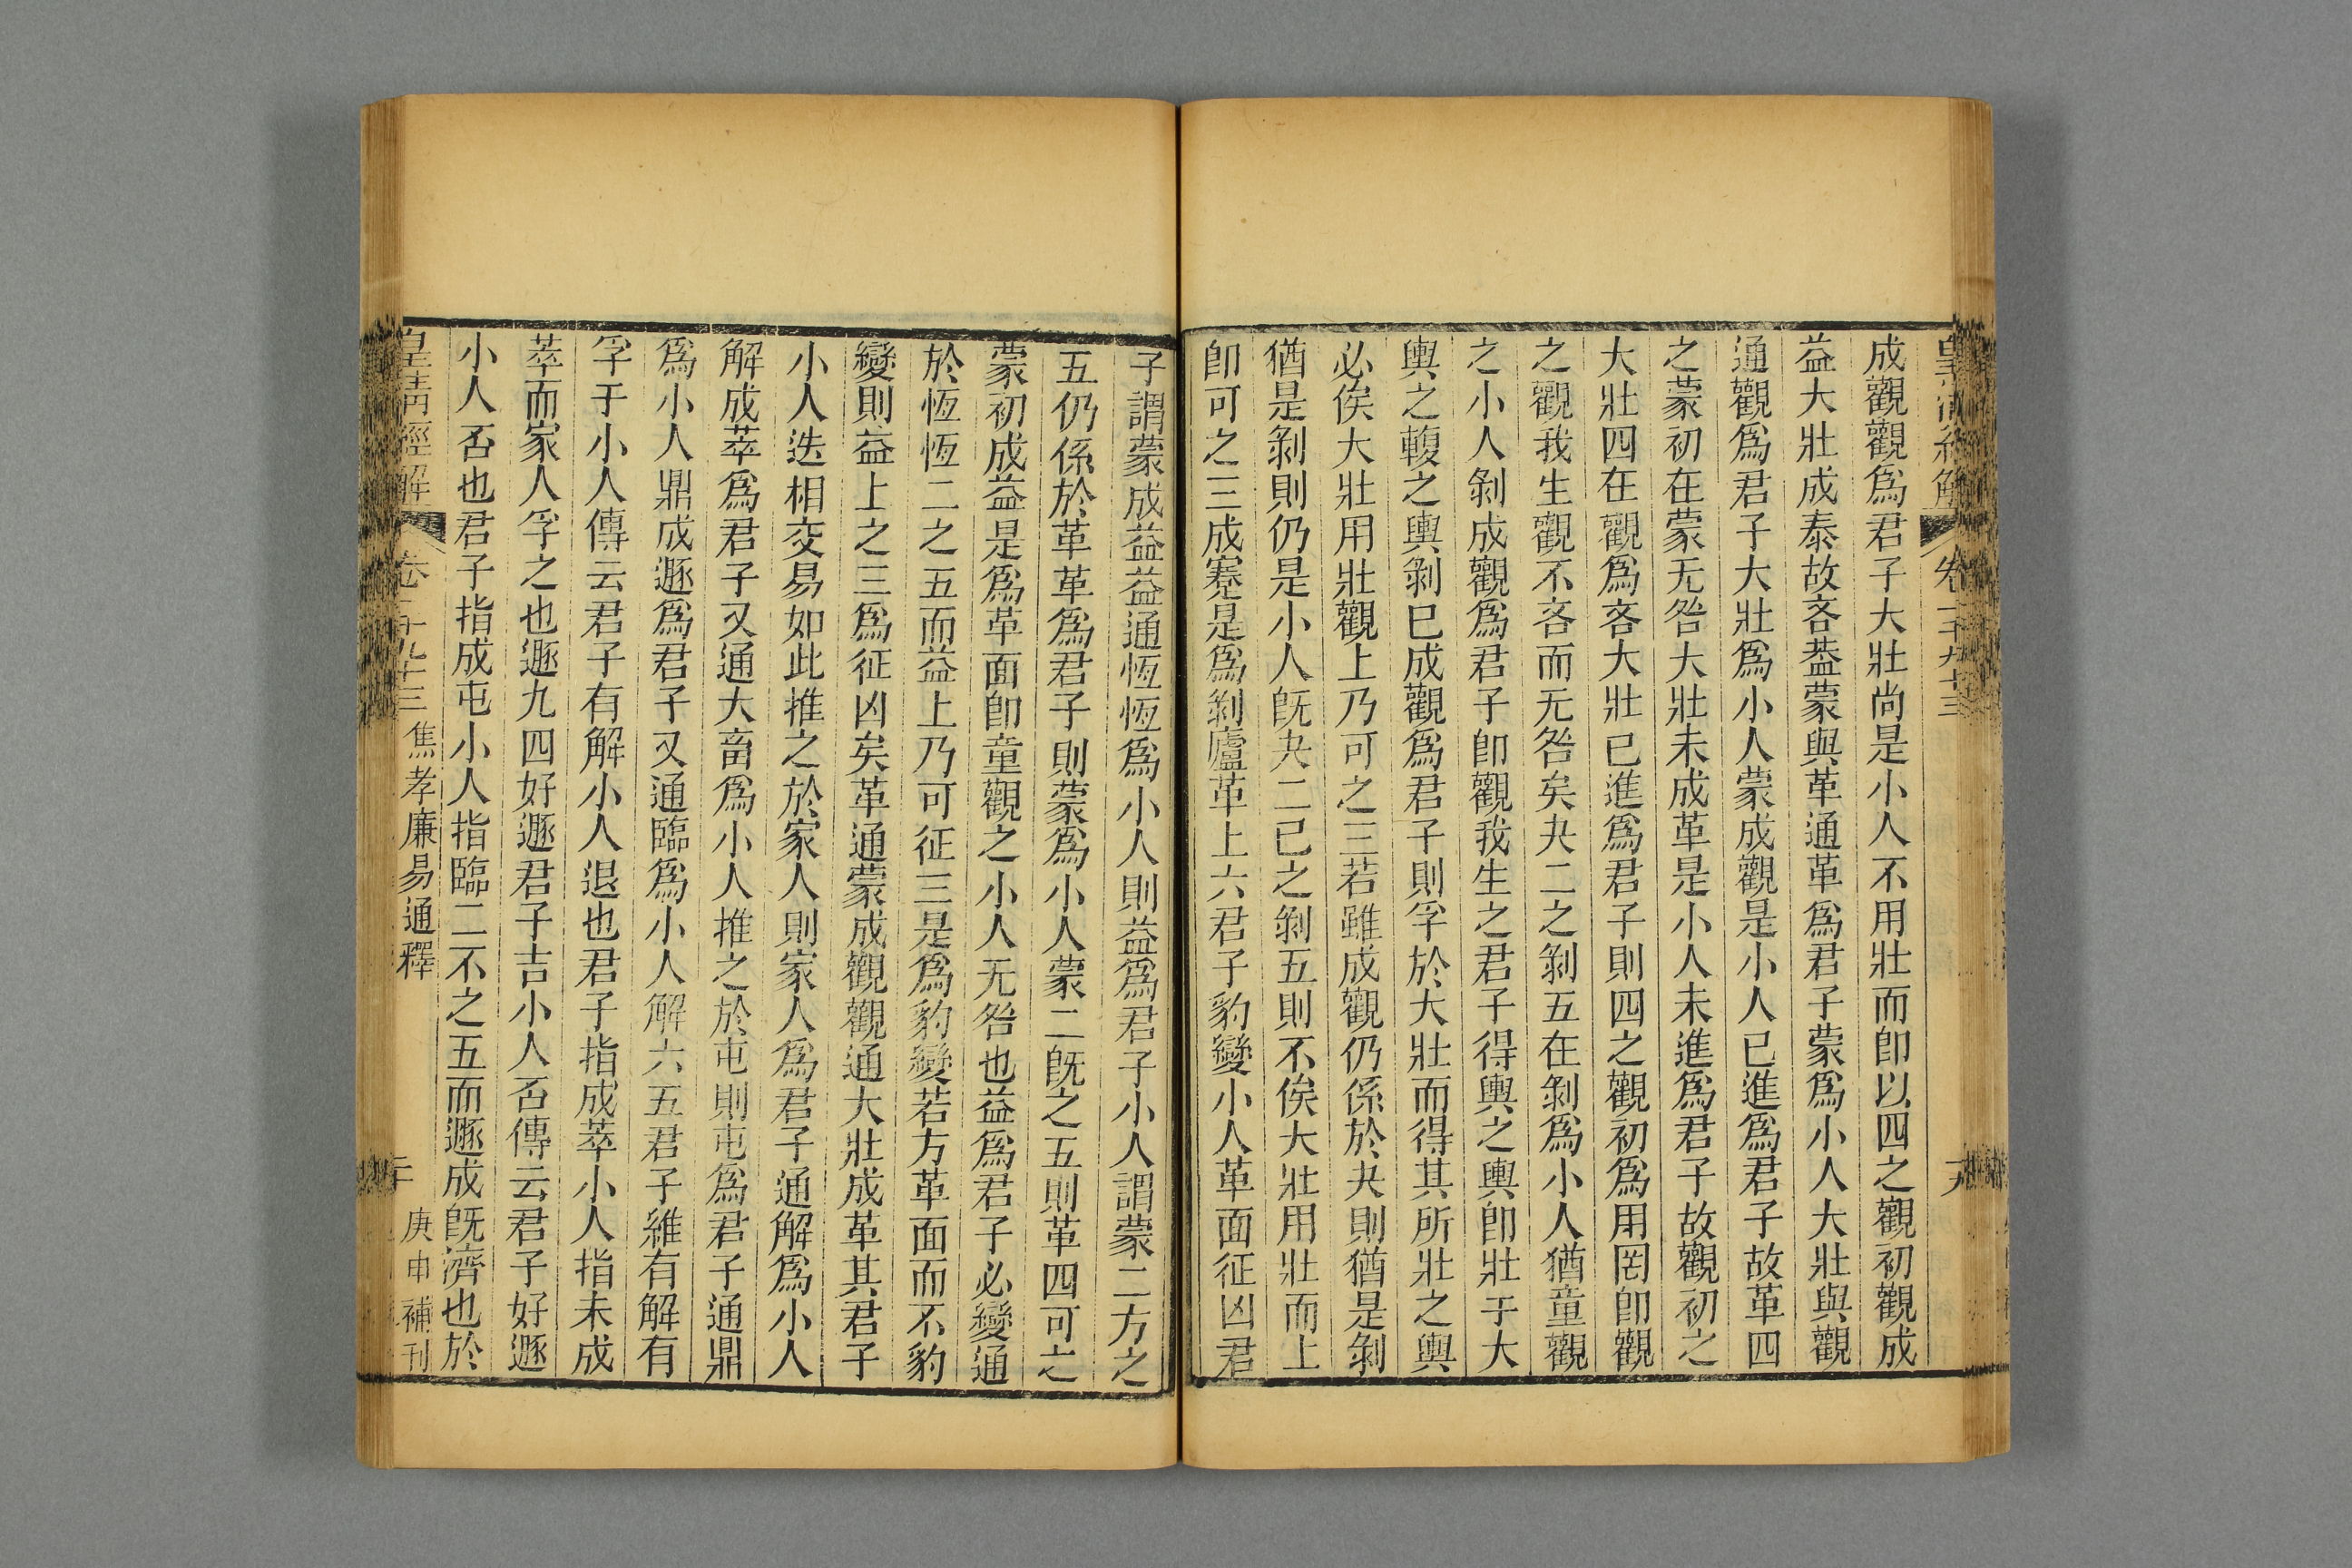 成觀觀爲君子大壯尚是小人不用壯而卽以四之觀初觀成
益大壯成泰故吝葢蒙與革通革爲君子蒙爲小人大壯與觀
通觀爲君子大壯爲小人蒙成觀是小人已進爲君子故革四
之蒙初在蒙无咎大壯未成革是小人未進爲君子故觀初之
大壯四在觀爲吝大壯已進爲君子則四之觀初爲用罔卽觀
之觀我生觀不吝而无咎矣夬二之剝五在剝爲小人猶童觀
之小人剝成觀爲君子卽觀我生之君子得輿之輿卽壯于大
輿之輹之輿剝巳成觀爲君子則孚於大壯而得其所壯之輿
必俟大壯用壯觀上乃可之三若雖成觀仍係於夬則猶是剝
猶是剝則仍是小人旣夬二已之剝五則不俟大壯用壯而上
卽可之三成蹇是爲剝廬革上六君子豹變小人革面征凶君
子謂蒙成益益通恆恆爲小人則益爲君子小人謂蒙二方之
五仍係於革革爲君子則蒙爲小人蒙二旣之五則革四可之
蒙初成益是爲革面卽童觀之小人无咎也益爲君子必變通
於恆恆二之五而益上乃可征三是爲豹變若方革面而不豹
變則益上之三爲征凶矣革通蒙成觀觀通大壯成革其君子
小人迭相交易如此推之於家人則家人爲君子通解爲小人
解成萃爲君子又通大畜爲小人推之於屯則屯爲君子通鼎
爲小人鼎成遯爲君子又通臨爲小人解六五君子維有解有
孚于小人傳云君子有解小人退也君子指成萃小人指未成
萃而家人孚之也遯九四好遯君子吉小人否傳云君子好遯
小人否也君子指成屯小人指臨二不之五而遯成旣濟也於
皇清經解 卷一千九十三 焦孝廉易通釋 二十 庚申補刊